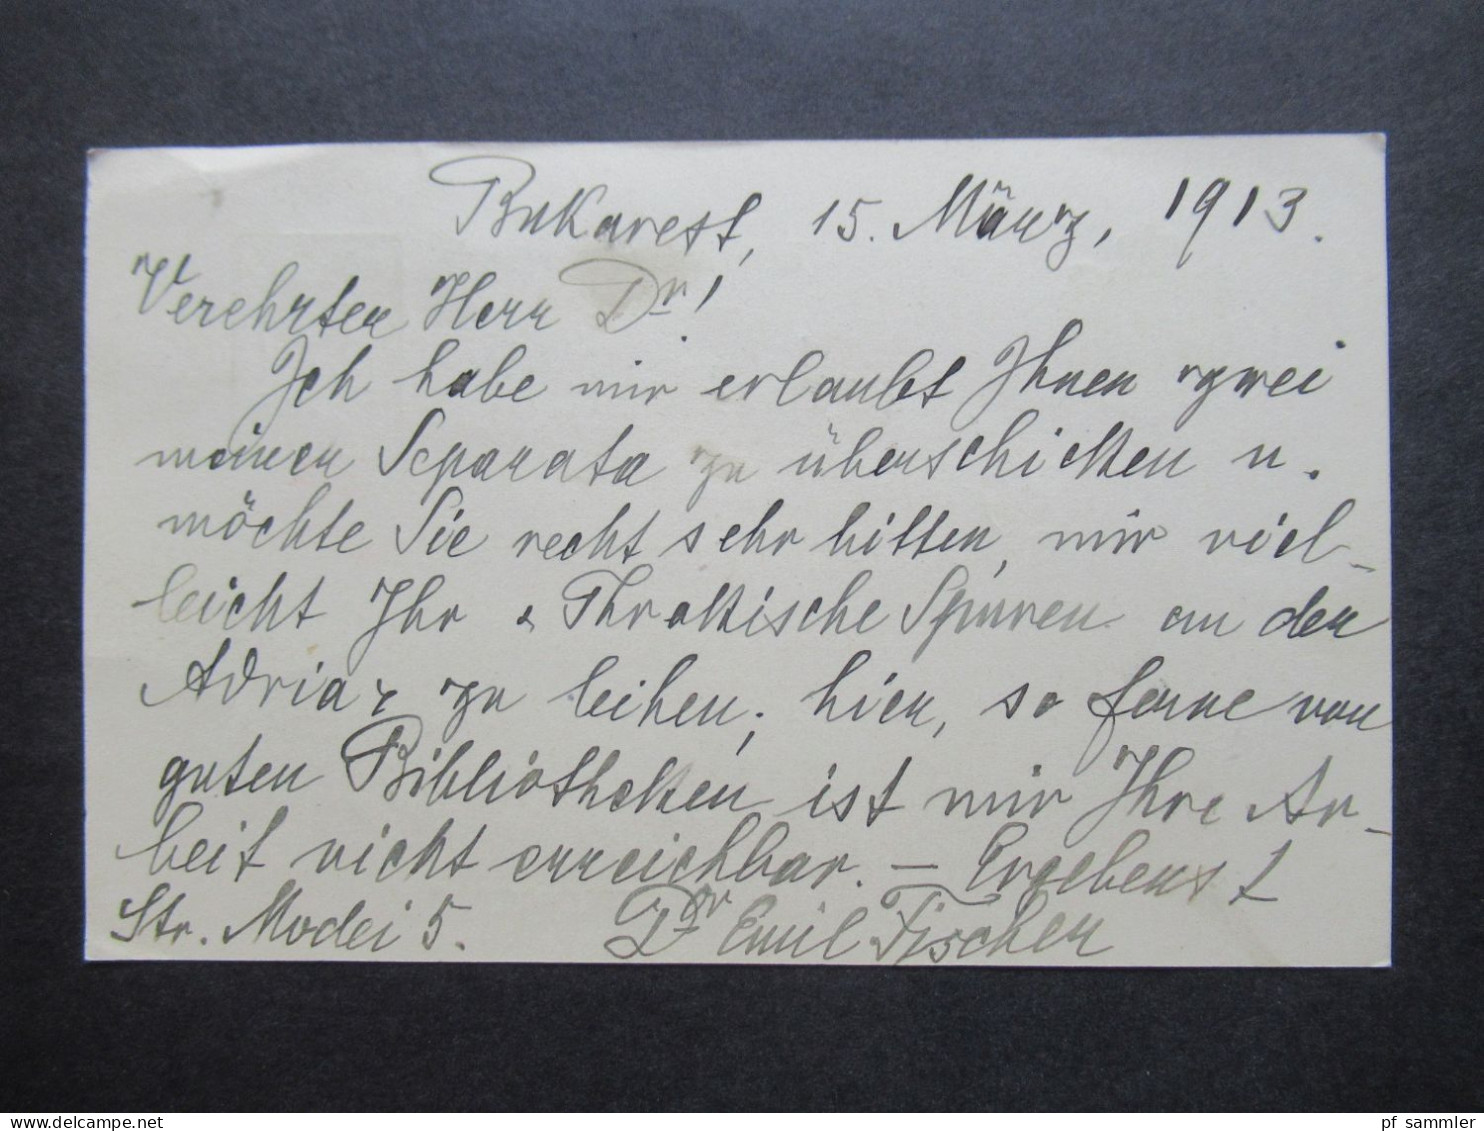 Bukarest, 15. März, 1913.
Verehrter Herr Dr!
Ich habe mir erlaubt Ihnen zwei
meiner Separata zu überschicken u.
möchte Sie recht sehr bitten, mir viel-
leicht Ihr "Thrakische Spuren an der
Adria" zu leihen; hier, so ferne von
guten Bibliotheken, ist mir Ihre Ar-
beit nicht erreichbar. — Ergebenst
Str. Modei 5. Dr Emil Fischer
pf_sammler - Delcampe.net